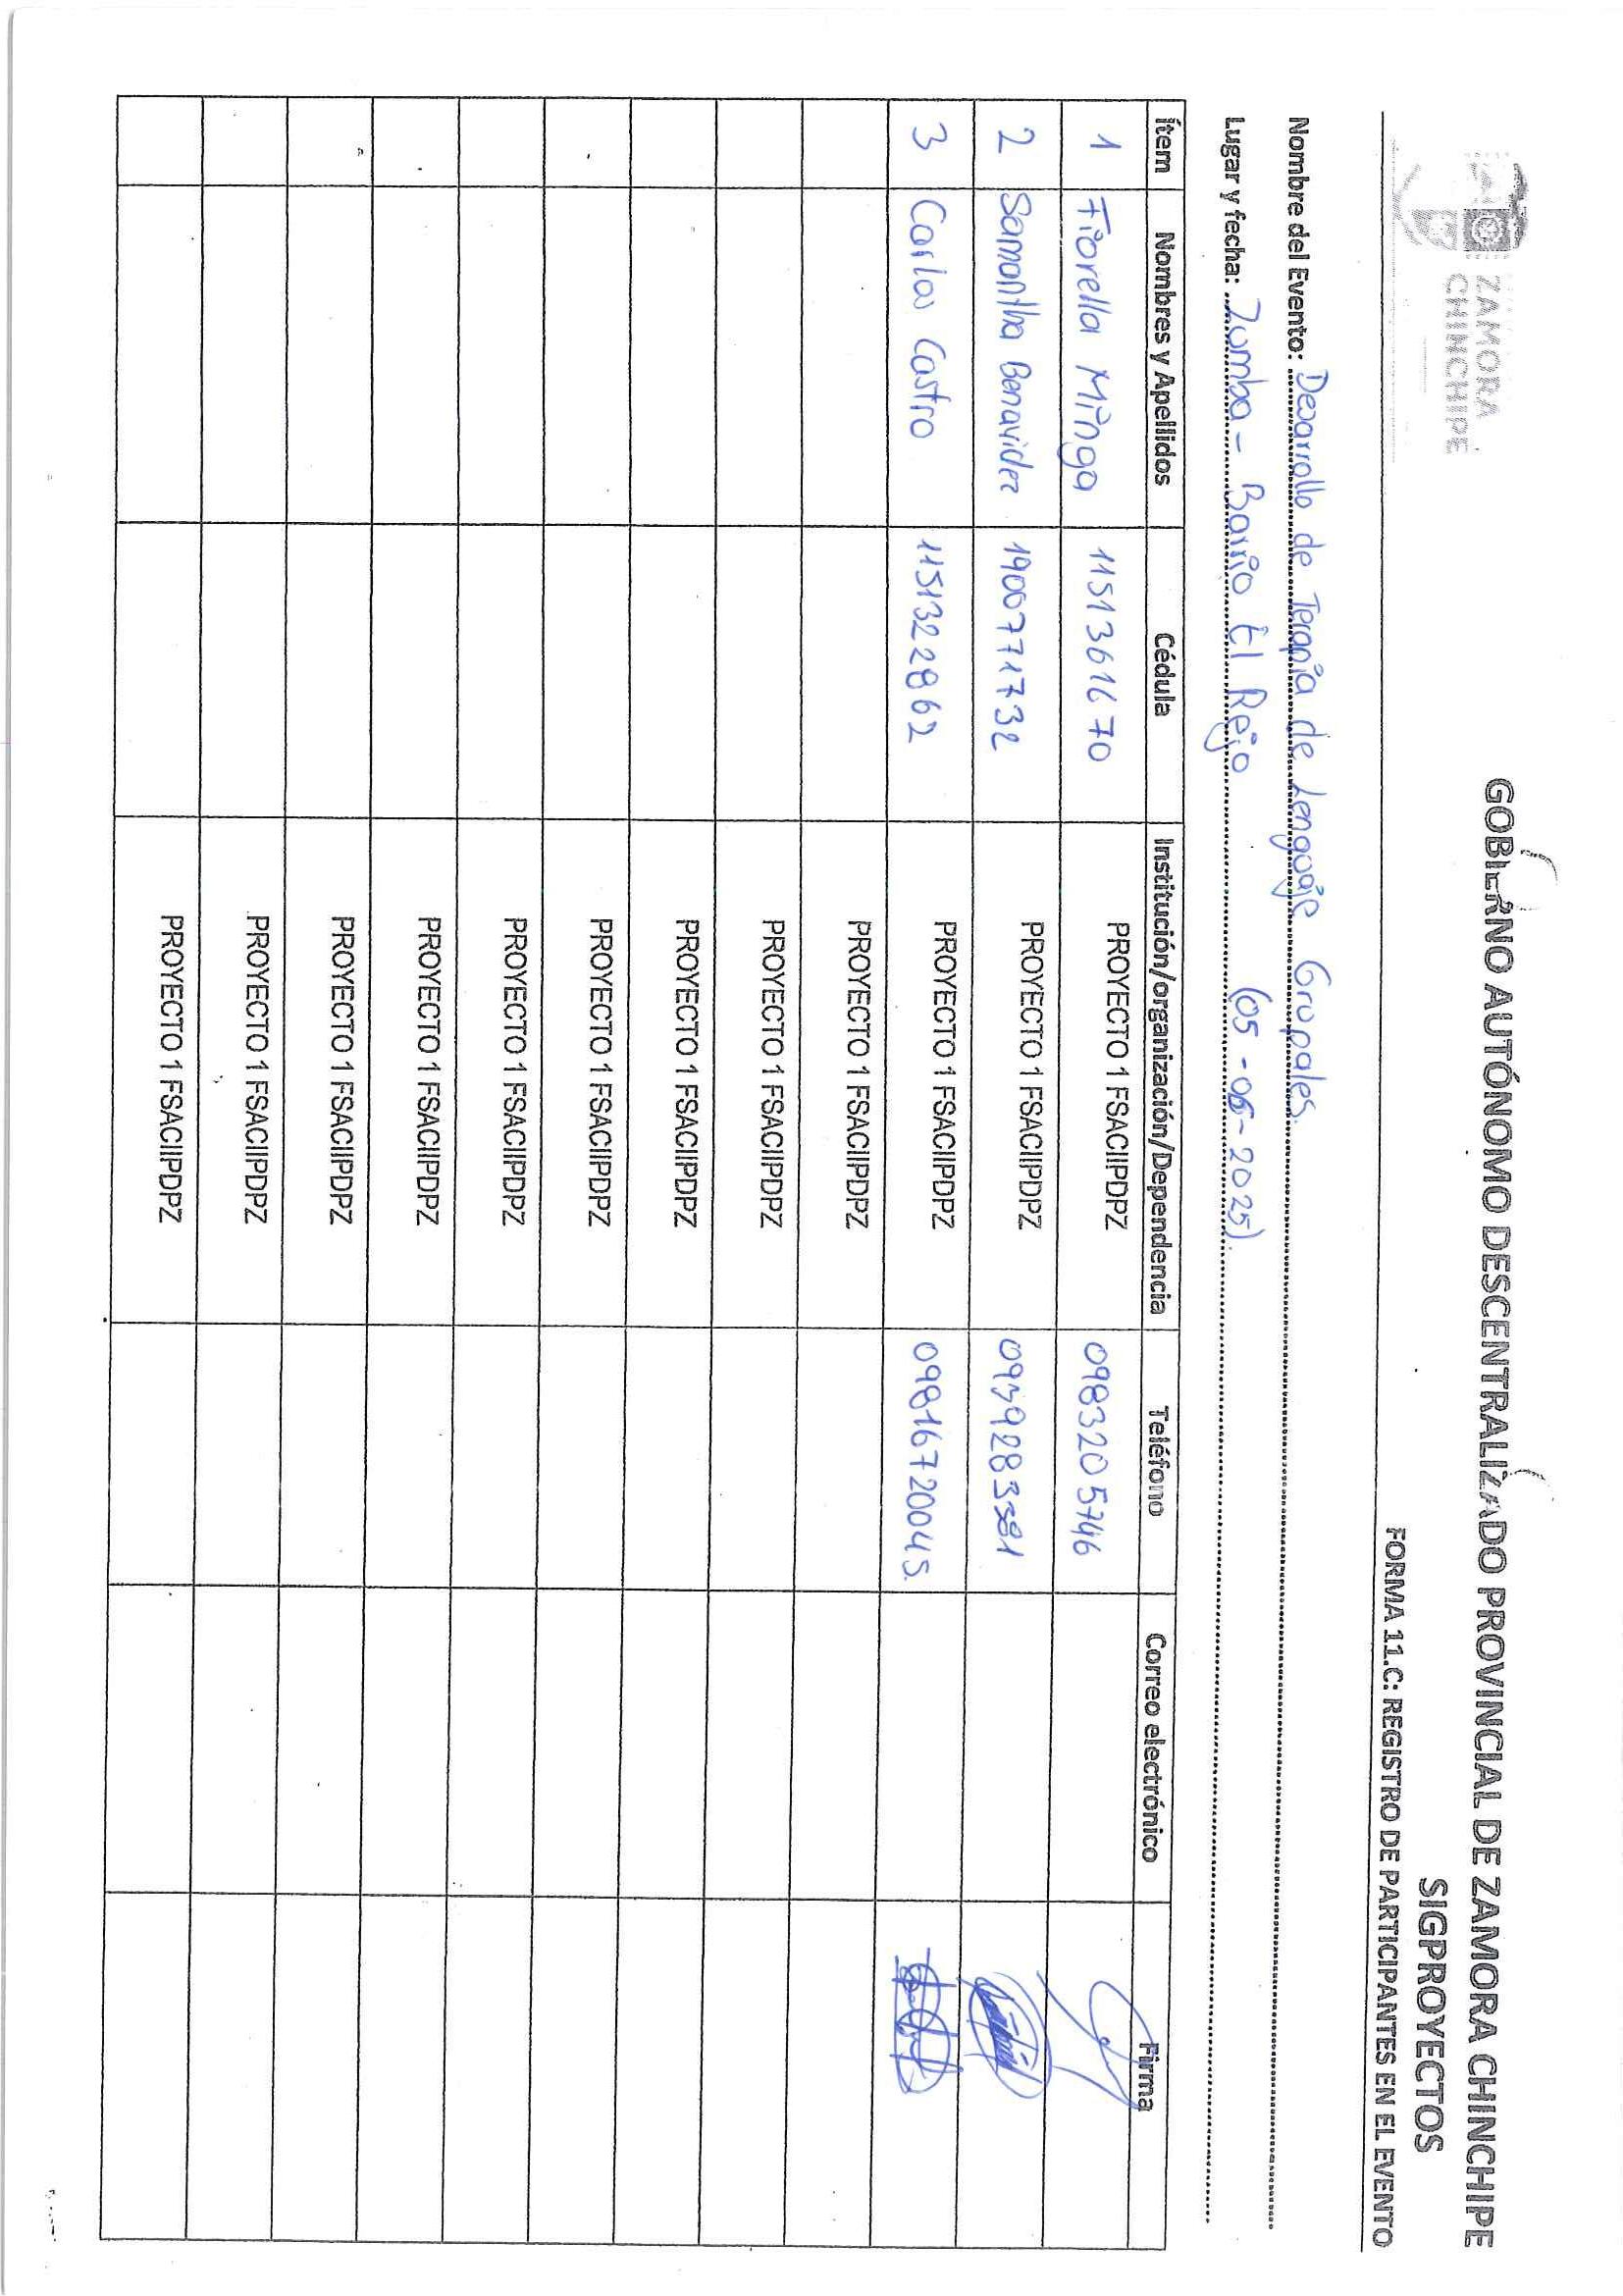 ZAMORA
CHINCHIPE
GOBIERNO AUTÓNOMO DESCENTRALIZADO PROVINCIAL DE ZAMORA CHINCHIPE
SIGPROYECTOS
FORMA 11.C: REGISTRO DE PARTICIPANTES EN EL EVENTO
Nombre del Evento: Desarrollo de Terapia de Lenguaje Grupales.
Lugar y fecha: Zumba - Barrio El Rejo (05 - 06 - 2025).
Ítem Nombres y Apellidos Cédula Institución/organización/Dependencia Teléfono Correo electrónico Firma
1 Fiorella Minga 1151361670 PROYECTO 1 FSACIIPDPZ 0983205746
2 Samantha Benavidez 1900771732 PROYECTO 1 FSACIIPDPZ
3 Carlos Castro 1151322862 PROYECTO 1 FSACIIPDPZ 09816720045.
PROYECTO 1 FSACIIPDPZ
PROYECTO 1 FSACIIPDPZ
PROYECTO 1 FSACIIPDPZ
PROYECTO 1 FSACIIPDPZ
PROYECTO 1 FSACIIPDPZ
PROYECTO 1 FSACIIPDPZ
PROYECTO 1 FSACIIPDPZ
PROYECTO 1 FSACIIPDPZ
PROYECTO 1 FSACIIPDPZ